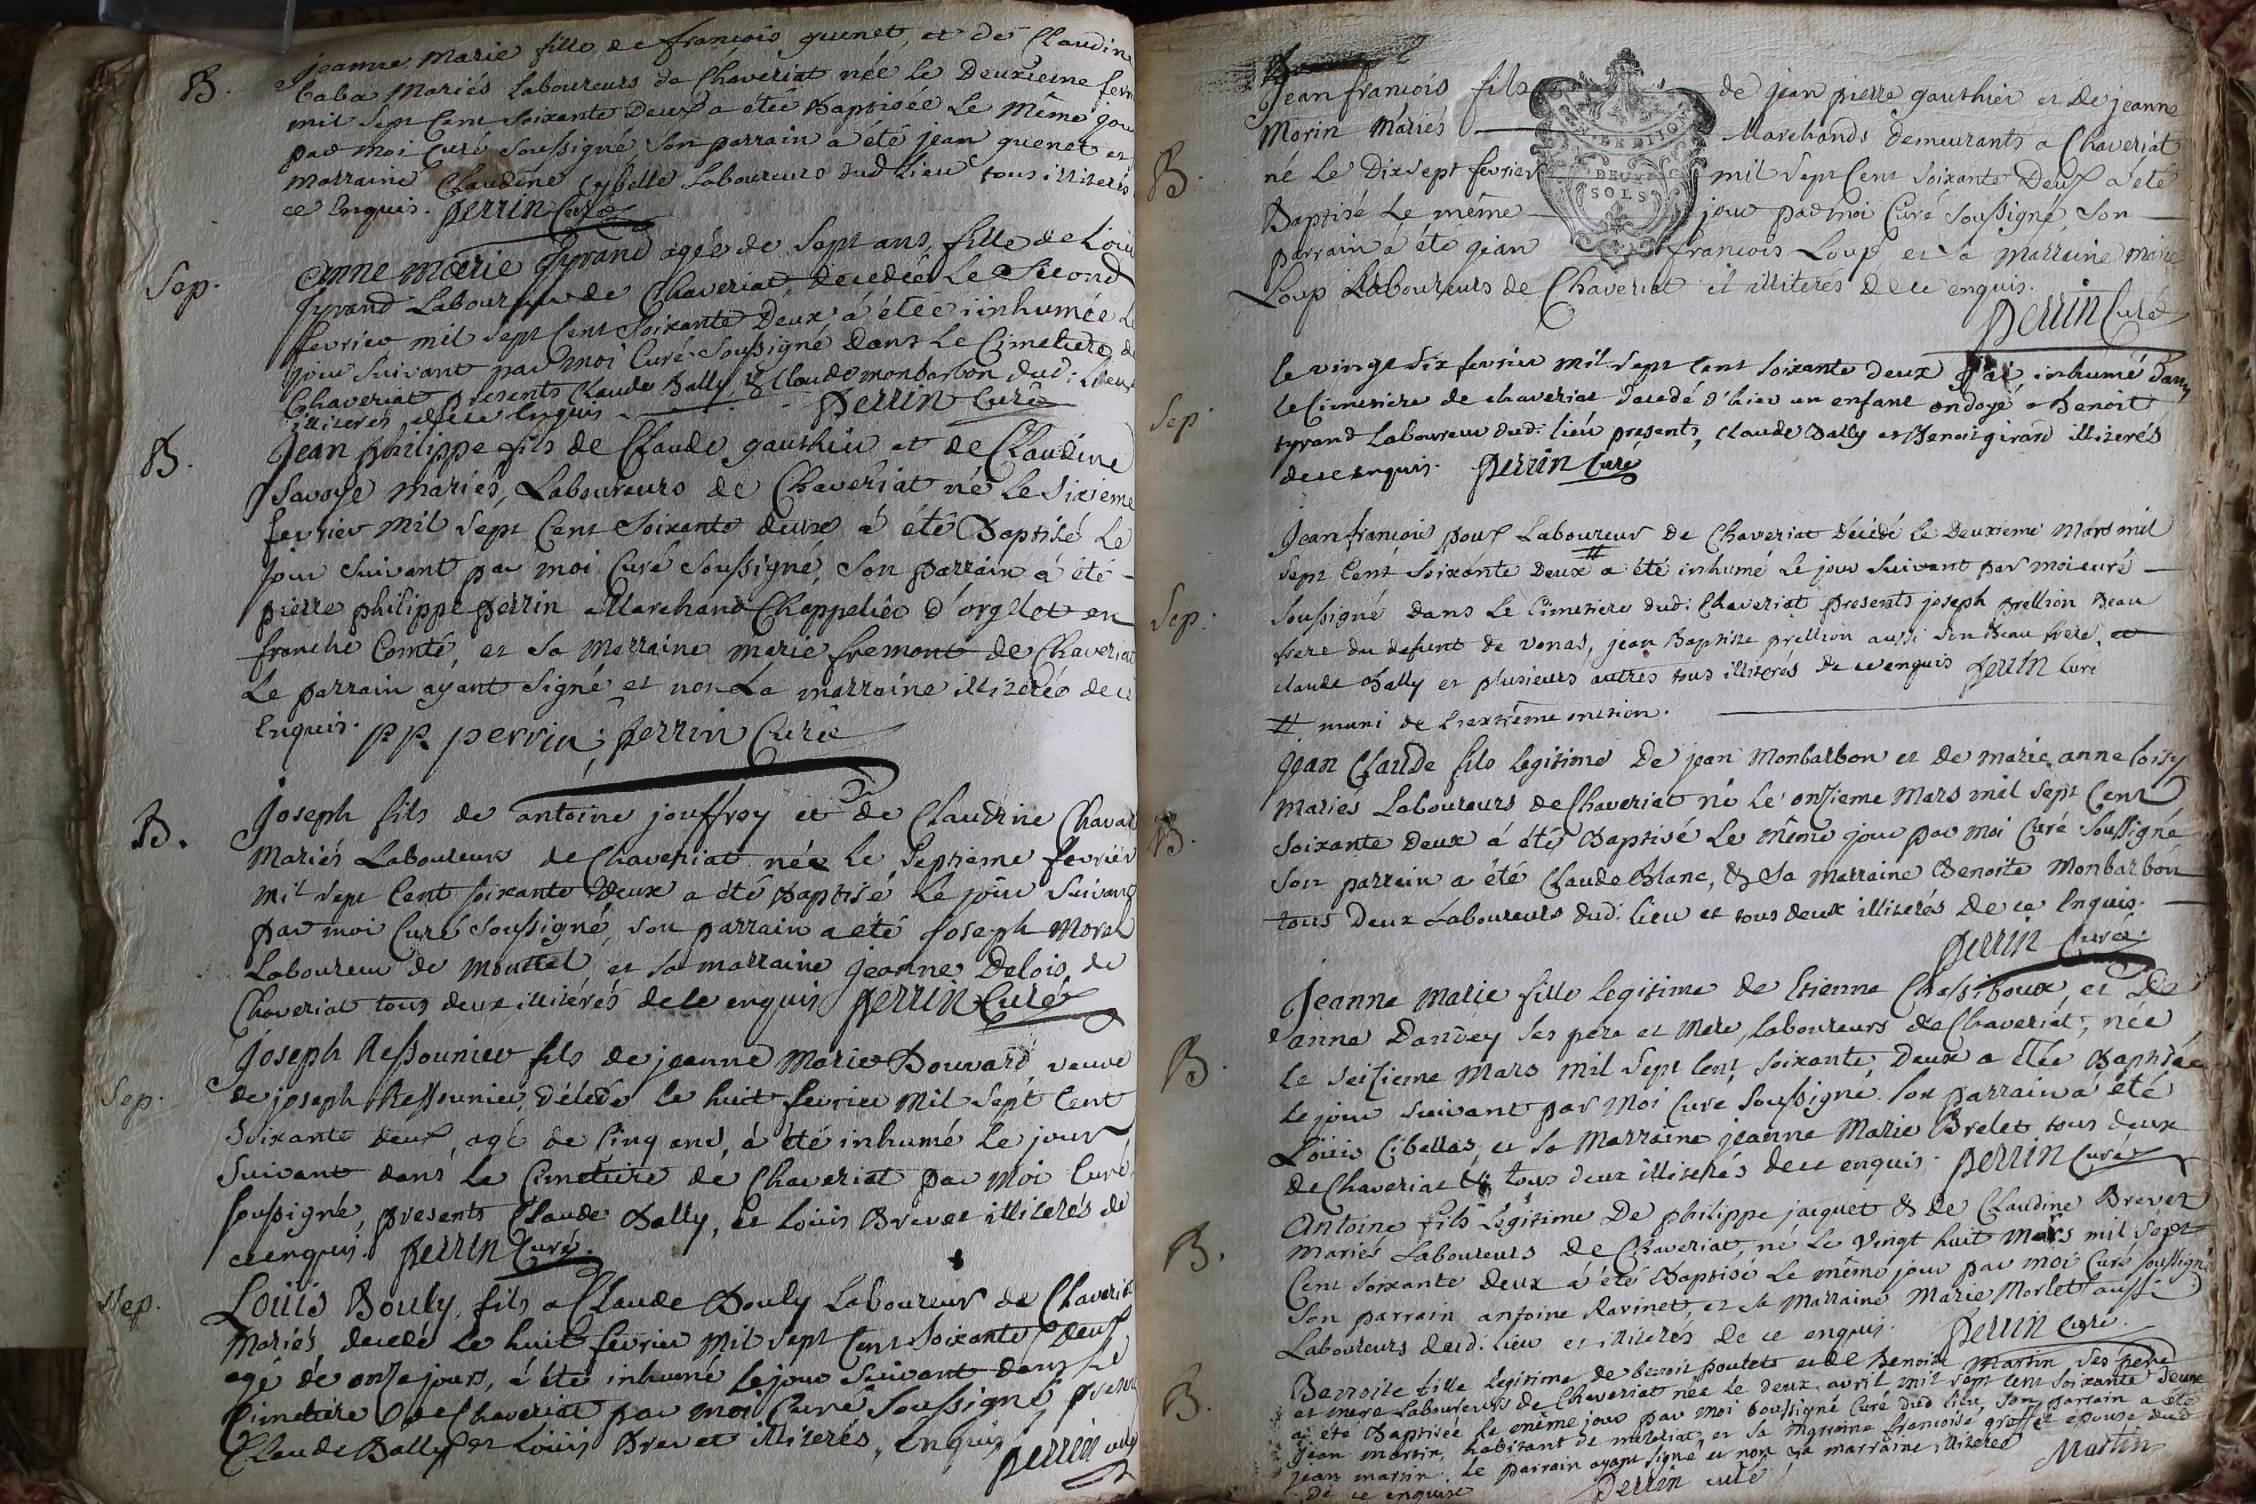 B.
jeanne Marie fille de françois guenet, et de Claudine
Caba Mariés Laboureurs de Chaveriat née le Deuxieme fevri
mil Sept Cent Soixante Deux a étéé Baptisée le Même jou
par Moi Curé Soussigné Son parrain a été jean guenet et
marraine Claudine Cybelle Laboureurs dud Lieu tous illiterés
ce Enquis. perrin Curé
Sep.
anne marie Tyrand agée de Sept ans, fille de Loui
Tyrand Laboureur de Chaveriat decedée Le Second
fevrier mil sept Cent Soixante Deux, a étéé inhumée Le
jour Suivant par moi Curé Soussigné dans Le Cimetiere de
Chaveriat presents Claude Bally & Claude monbarbon dud. Lieux
illiterés dece Enquis. perrin Curé
B.
Jean philippe fils de Claude gauthier et de Claudine
Savoye mariés, Laboureurs de Chaveriat né le Sixieme
fevrier Mil Sept Cent Soixante deux a été Baptisé Le
jour Suivant par moi Curé Soussigné, Son parrain a été
pierre philippe perrin Marchand Chappelier d'orgelet en
franche Comté, et Sa Marraine marie fremont de Chaveriat
Le parrain ayant Signé et non La marraine illiterée de ce
Enquis. p p. perrin; perrin Curé
B.
Joseph fils de antoine jouffroy et de Claudine Chava
Mariés Laboureurs de Chaveriat née Le Septieme fevrier
mil Sept Cent Soixante Deux a été Baptisé Le jour Suivant
par moi Curé Soussigné, Son parrain a été Joseph Morel
Laboureur de Moustel et Sa marraine jeanne Delois de
Chaveriat tous deux illiterés dece enquis perrin Curé
Sep.
Joseph Ressounier fils de jeanne Marie Bouvard veuve
de joseph Ressounier, décédé le huit fevrier Mil Sept Cent
Soixante deux, agé de Cinq ans, a été inhumé le jour
Suivant dans le Cimetiere de Chaveriat par Moi Curé
soussigné, presents Claude Bally, et Loüis Brevet illiterés de
ce enquis. perrin Curé.
Sep.
Loüis Bouly, fils a Claude Bouly Laboureur de Chaveriat
Mariés, decedé Le huit fevrier Mil Sept Cent Soixante Deux
agé de onze jours, a été inhumé le jour Suivant dans Le
Cimetiere de Chaveriat par moi Curé Soussigné, presents
Claude Bally et Loüis Brevet illiterés, Enquis perrin curé
Jean francois fils de jean pierre gauthier et de jeanne
Morin Mariés Marchands demeurants a Chaveriat
B.
né Le Dixsept fevrier mil Sept Cent Soixante Deux a été
Baptisé Le même jour par moi Curé Soussigné, Son
parrain a été jean francois Loup et Sa Marraine marie
Loup Laboureurs de Chaveriat et illiterés de ce enquis.
perrin Curé
DEUX
SOLS
le vingt Six fevrier mil Sept Cent Soixante deux j'ai inhumé dans
Sep.
le Cimetiere de chaveriat decedé d'hier un enfant ondoyé a Benoit
tyrand Laboureur dud: lieu presents, Claude Bally et Benoit girard illiterés
de ce enquis. perrin Curé
Jean françois poux Laboureur de Chaveriat décédé le Deuxieme Mars mil
Sept Cent Soixante Deux a été inhumé Le jour Suivant par moi curé
Sep.
Soussigné dans le Cimetiere dud: Chaveriat presents joseph prellion Beau
frere du defunt de Vonas, jean Baptiste prellion aussi Son Beau frere, et
claude Bally et plusieurs autres tous illiterés de ce enquis perrin Curé
# muni de L'extrême onction.
Jean Claude fils legitime de jean Monbarbon et de marie anne Coisy
mariés Laboureurs de Chaveriat né Le onzieme Mars mil Sept Cent
B.
Soixante Deux a été Baptisé Le même jour par moi Curé Soussigné
Son parrain a été Claude Blanc, & Sa marraine Benoite Monbarbon
tous Deux Laboureurs dud: lieu et tous deux illiterés De ce Enquis.
perrin Curé.
Jeanne Marie fille legitime de Etienne Chassiboux, et de
anne Danvey Ses pere et Mere, Laboureurs de Chaveriat, née
B.
le Seizieme Mars mil Sept Cent Soixante Deux a étée Baptisée
le jour Suivant par Moi Curé Soussigné. Son parrain a été
Loüis Cibellas, et Sa Marraine jeanne Marie Brelet tous deux
de Chaveriat & tous deux illiterés de ce enquis. perrin Curé
Antoine fils legitime De philippe jacquet & de Claudine Brevet
B.
mariés Laboureurs de Chaveriat, né le Vingt huit Mars mil Sept
Cent Soixante Deux a été Baptisé Le même jour par moi Curé Soussigné
Son parrain antoine Ravinet, et Sa Marraine Marie Morlet aussi
Laboureurs dud. Lieu et illiterés De ce enquis. perrin Curé.
B.
Benoite fille legitime de benoit poutet et de Benoite Martin Ses pere
et mere Laboureurs de Chaveriat née Le deux avril mil Sept Cent Soixante Deux
a été Baptisée le même jour par moi Soussigné Curé dud lieu, Son parrain a été
Jean martin, habitant de mezeriat, et Sa marraine francoise greffet epouse dud
Jean martin. le parrain ayant signé et non la marraine illiterée
de ce enquise perrin curé Martin